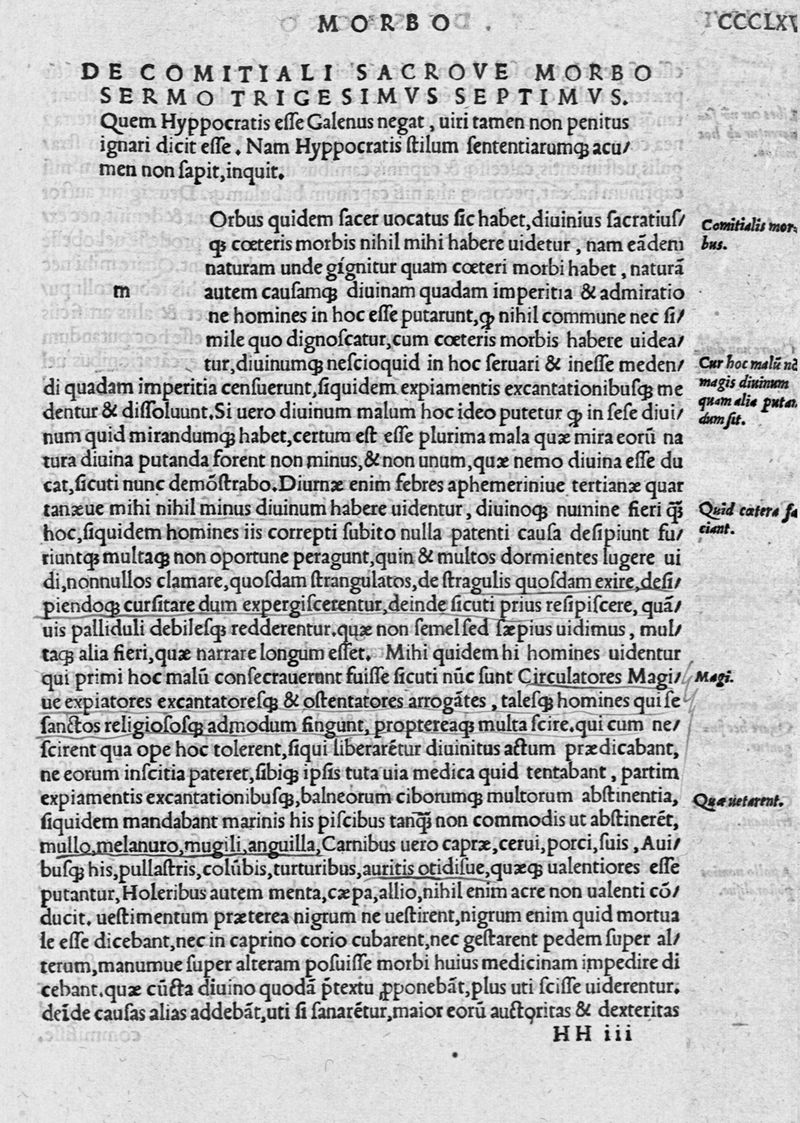 MORBO.
CCCLXV
DE COMITIALI SACROVE MORBO
SERMO TRIGESIMVS SEPTIMVS.
Quem Hyppocratis eſſe Galenus negat, uiri tamen non penitus
ignari dicit eſſe. Nam Hyppocratis ſtilum ſententiarumꝗ acu/
men non ſapit, inquit.
Orbus quidem ſacer uocatus ſic habet, diuinius ſacratiuſ/
ꝗ cœteris morbis nihil mihi habere uidetur, nam eãdem
naturam unde gígnitur quam cœteri morbi habet, naturã
m autem cauſamꝗ diuinam quadam imperitia & admiratio
ne homines in hoc eſſe putarunt, ꝗ nihil commune nec ſi/
mile quo dignoſcatur, cum cœteris morbis habere uidea/
tur, diuinumꝗ neſcioquid in hoc ſeruari & ineſſe meden/
di quadam imperitia cenſuerunt, ſiquidem expiamentis excantationibuſꝗ me
dentur & diſſoluunt. Si uero diuinum malum hoc ideo putetur ꝗ in ſeſe diui/
num quid mirandumꝗ habet, certum eſt eſſe plurima mala quæ mira eorũ na
tura diuina putanda forent non minus, & non unum, quæ nemo diuina eſſe du
cat, ſicuti nunc demõſtrabo. Diurnæ enim febres aphemeriniue tertianæ quar
tanæue mihi nihil minus diuinum habere uidentur, diuinoꝗ numine fieri ꝗ̃
hoc, ſiquidem homines iis correpti ſubito nulla patenti cauſa deſipiunt fu/
riuntꝗ multaꝗ non oportune peragunt, quin & multos dormientes lugere ui
di, nonnullos clamare, quoſdam ſtrangulatos, de ſtragulis quoſdam exire, deſi/
piendoꝗ curſitare dum expergiſcerentur, deinde ſicuti prius reſipiſcere, quã/
uis palliduli debileſꝗ redderentur. quæ non ſemel ſed ſæpius uidimus, mul/
taꝗ alia fieri, quæ narrare longum eſſet. Mihi quidem hi homines uidentur
qui primi hoc malũ conſecrauerunt fuiſſe ſicuti nũc ſunt Circulatores Magi/
ue expiatores excantatoreſꝗ & oſtentatores arrogãtes, taleſꝗ homines qui ſe
ſanctos religioſoſꝗ admodum fingunt, proptereaꝗ multa ſcire. qui cum ne/
ſcirent qua ope hoc tolerent, ſiqui liberarẽtur diuinitus actum prædicabant,
ne eorum inſcitia pateret, ſibiꝗ ipſis tuta uia medica quid tentabant, partim
expiamentis excantationibuſꝗ, balneorum ciborumꝗ multorum abſtinentia,
ſiquidem mandabant marinis his piſcibus tanꝗ̃ non commodis ut abſtinerẽt,
mullo, melanuro, mugili, anguilla, Carnibus uero capræ, cerui, porci, ſuis, Aui/
buſꝗ his, pullaſtris, colũbis, turturibus, auritis otidiſue, quæꝗ ualentiores eſſe
putantur, Holeribus autem menta, cæpa, allio, nihil enim acre non ualenti cõ/
ducit. ueſtimentum præterea nigrum ne ueſtirent, nigrum enim quid mortua
le eſſe dicebant, nec in caprino corio cubarent, nec geſtarent pedem ſuper al/
terum, manumue ſuper alteram poſuiſſe morbi huius medicinam impedire di
cebant. quæ cũcta diuino quodã p̃textu ꝓponebãt, plus uti ſciſſe uiderentur.
deĩde cauſas alias addebãt, uti ſi ſanarẽtur, maior eorũ auctoritas & dexteritas
HH iii
Comitialis mor-
bus.
Cur hoc malũ nõ
magis diuinum
quam alia putan
dum ſit.
Quid cætera fa
ciant.
Magi.
Quæ uetarent.